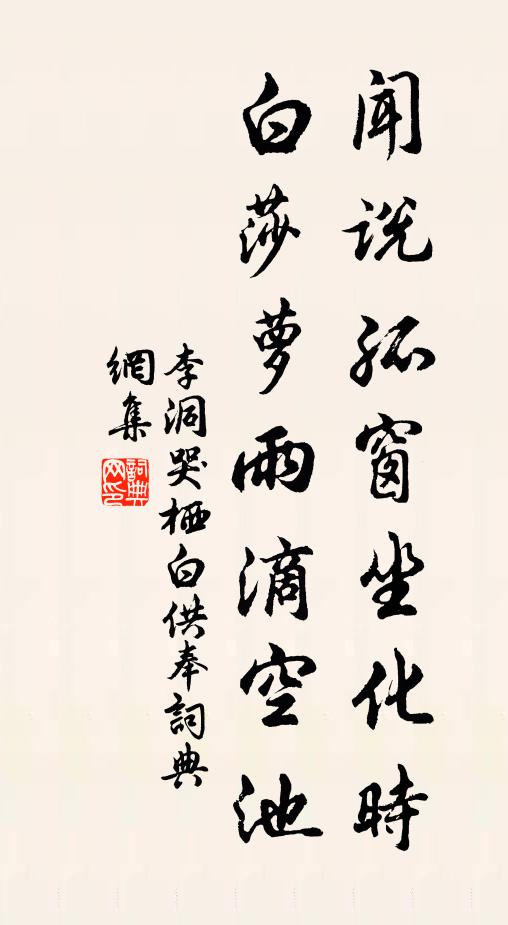 聞説孤窗坐化時
白莎蘿雨滴空池
李洞哭栖白供奉詞典
網集
詞典网印